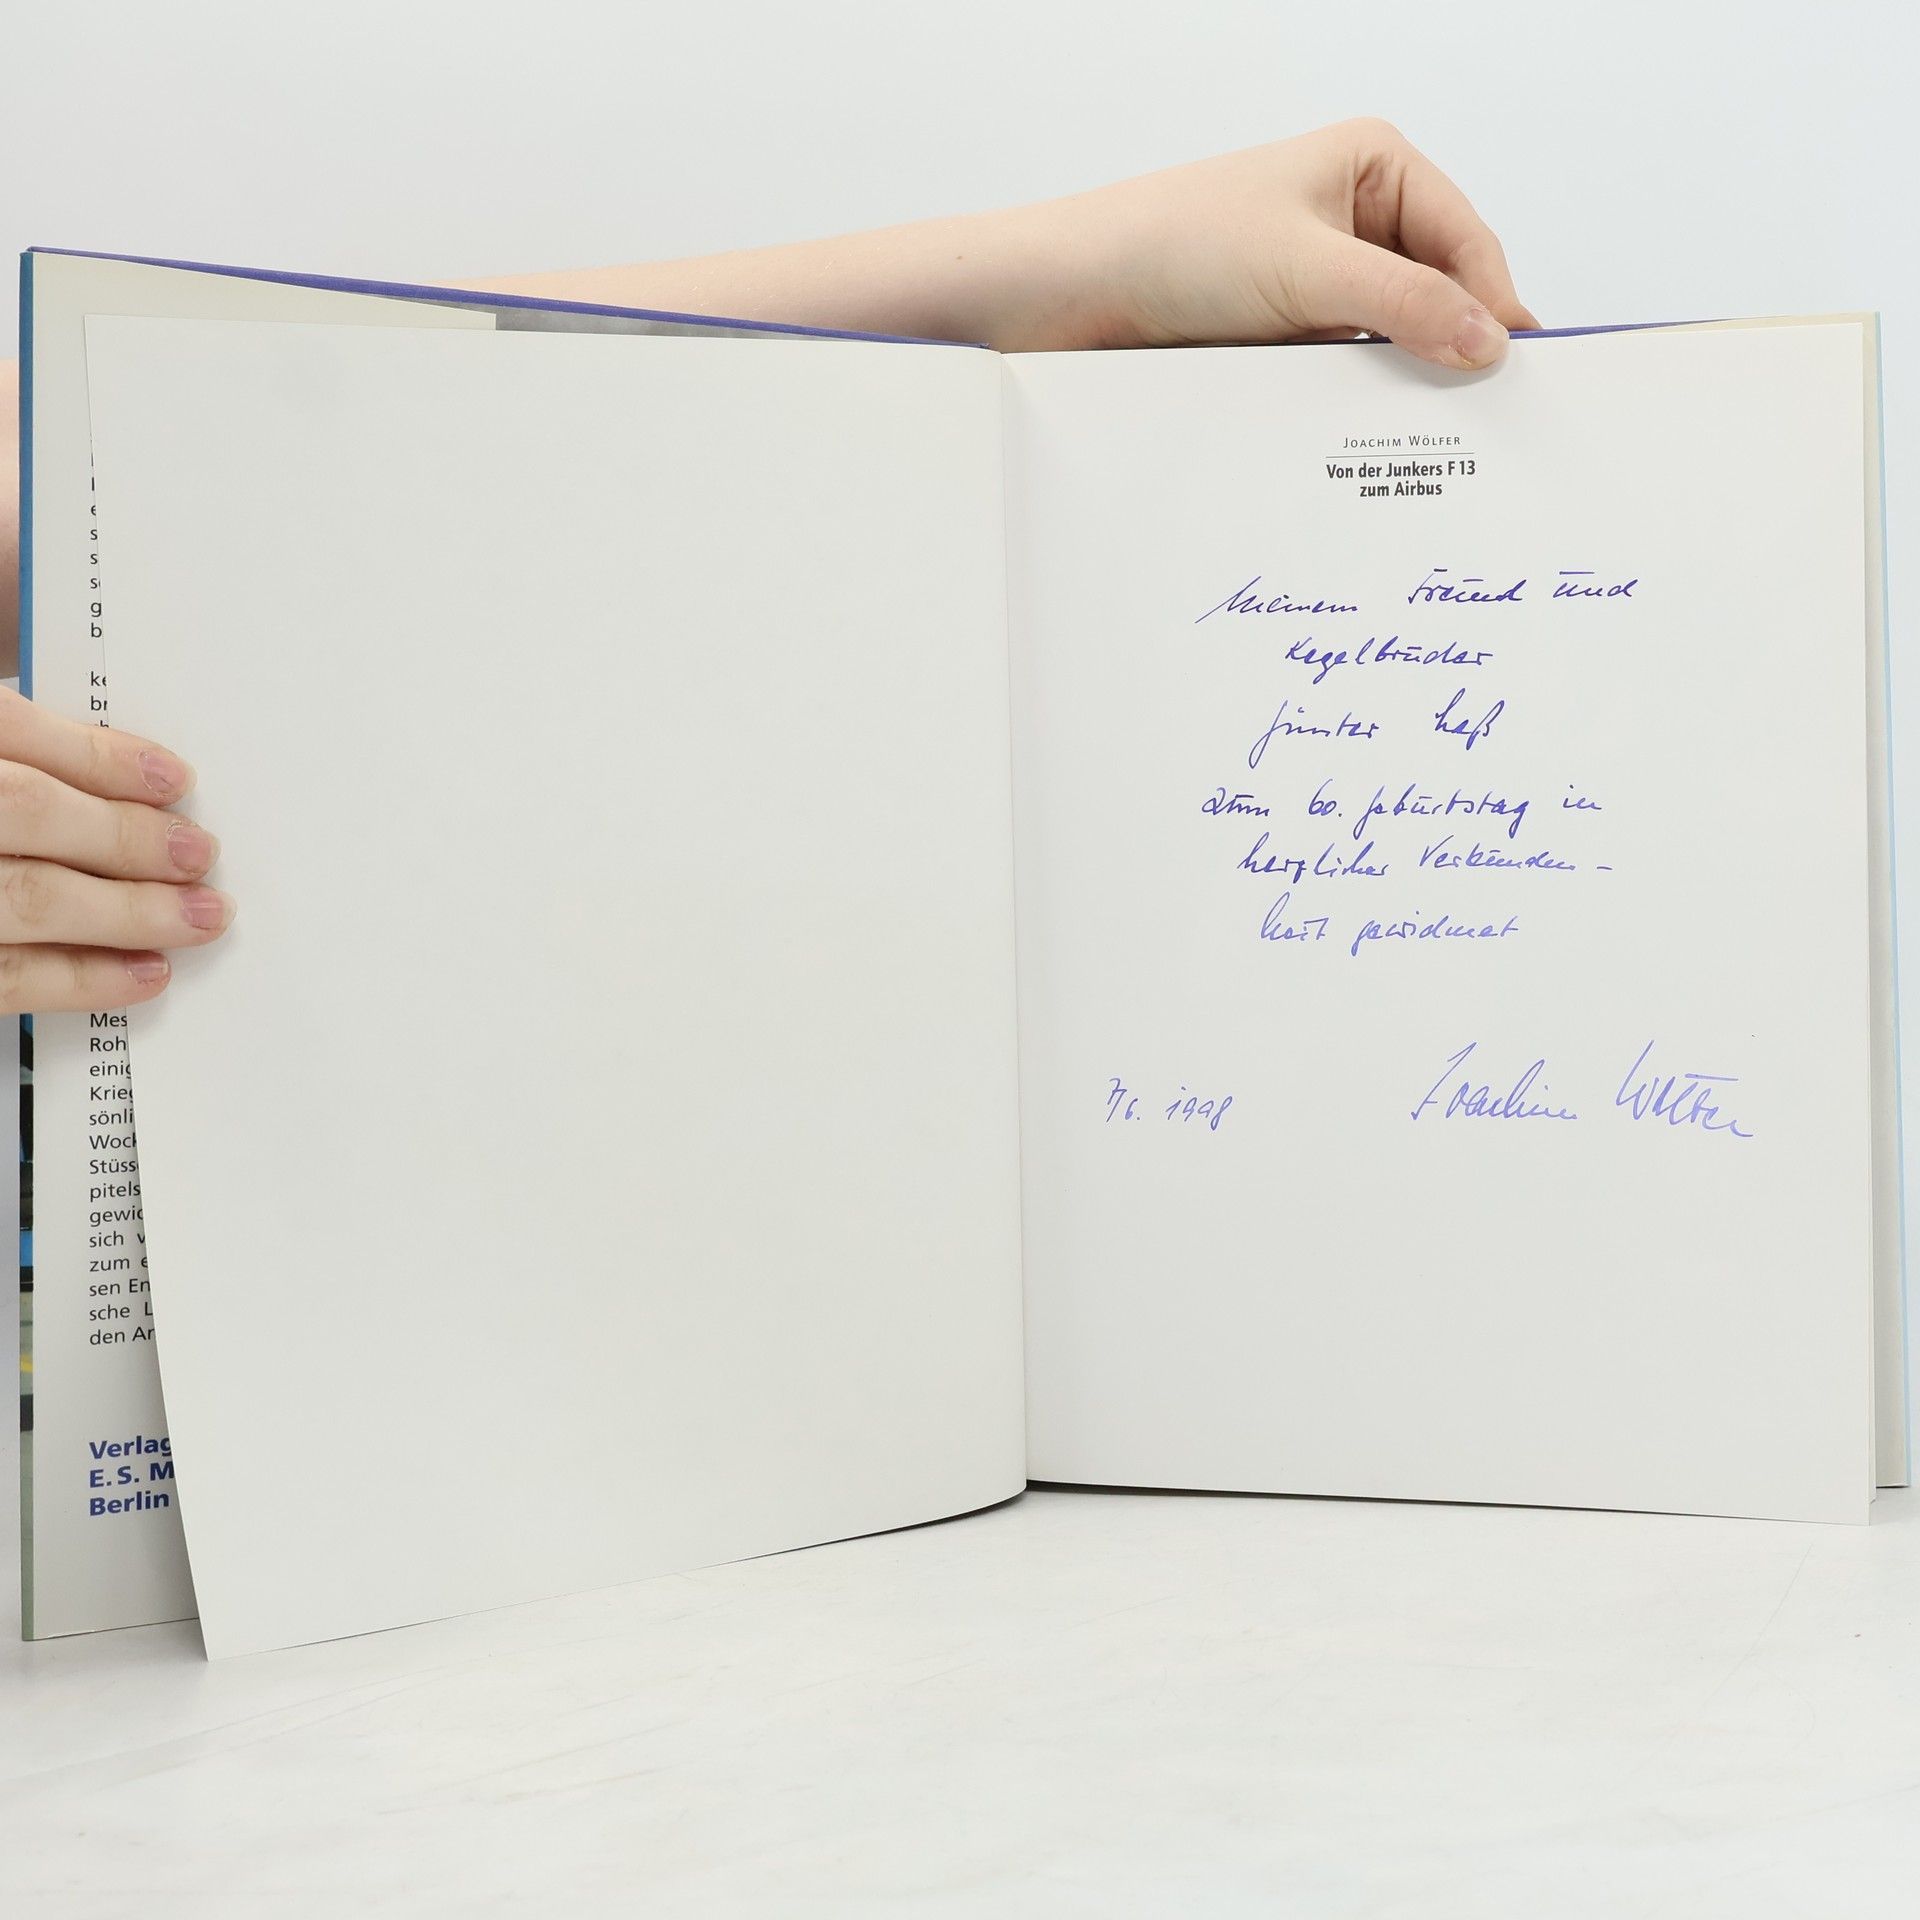 ke
br
Mes
Roh
einig
Krieg
sönli
Woch
Stüss
pitels
gewid
sich v
zum e
sen En
sche L
den Ar
Verlag
E. S. M
Berlin
JOACHIM WÖLFER
Von der Junkers F 13
zum Airbus
Meinem Freund und
Kegelbruder
Günter Haß
zum 60. Geburtstag in
herzlicher Verbunden-
heit gewidmet
7/6. 1998
Joachim Wölfer